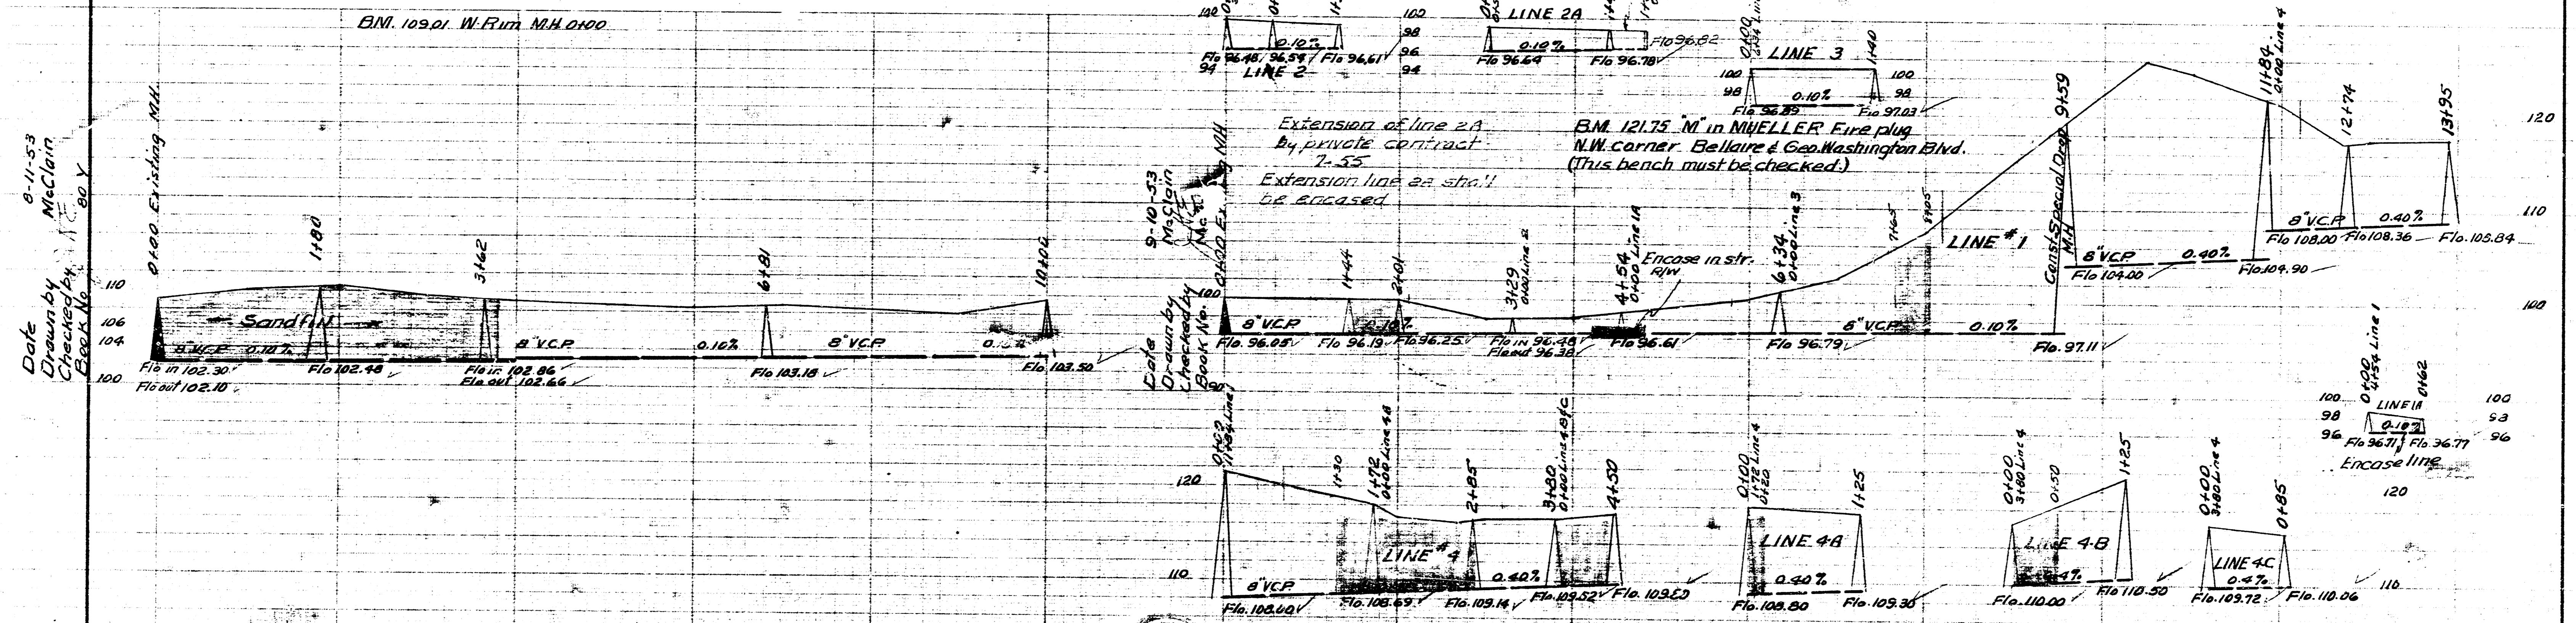 B.M. 109.01 W. Rim M.H. 0+00
8-11-53
McClain
80 Y
Date
Drawn by
Checked by
Book No.
0+00 Existing M.H.
1+80
3+62
6+81
10+00
110
106
104
100
Sandfill
8" V.C.P. 0.10%
8" V.C.P.
0.10%
8" V.C.P.
Flo in 102.30
Flo out 102.10
Flo 102.48
Flo in 102.86
Flo out 102.66
Flo 103.18
Flo 103.50
100
100
98
96
94
94
0.10%
Flo 96.48
96.54
Flo 96.61
LINE 2
LINE 2A
0.10%
Flo 96.64
Flo 96.78
Flo 96.82
0+00
6+34 Line 3
LINE 3
1+40
100
98
100
98
0.10%
Flo 96.89
Flo 97.03
Extension of line 2A
by private contract
7-55
Extension line 2A shall
be encased
B.M. 121.75 "M" in MUELLER Fire plug
N.W. corner Bellaire & Geo. Washington Blvd.
(This bench must be checked.)
9-10-53
McClain
Date
Drawn by
Checked by
Book No.
100
90
1+44
2+01
3+29
4+54
0+00 Line 1A
Encase in str.
R/W
6+34
0+00 Line 3
7+65
8+05
LINE #1
Const. Special Drop
M.H.
9+59
8" V.C.P.
0.10%
8" V.C.P.
0.10%
Flo. 96.05
Flo 96.19
Flo 96.25
Flo in 96.48
Flo out 96.38
Flo 96.61
Flo 96.79
Flo. 97.11
8" V.C.P.
0.40%
Flo 104.00
Flo 104.90
11+84
0+00 Line 4
12+74
13+95
8" V.C.P.
0.40%
Flo 108.00
Flo 108.36
Flo. 108.84
120
110
100
0+00
4+54 Line 1
0+62
LINE 1A
100
98
96
100
98
96
0.10%
Flo 96.71
Flo 96.77
Encase line
0+00
11+84 Line 1
1+30
1+72
0+00 Line 4A
2+85
3+80
0+00 Line 4B&C
4+50
120
110
LINE #4
8" V.C.P.
0.40%
Flo. 108.00
Flo. 108.69
Flo. 109.14
Flo. 109.52
0+00
1+72 Line 4
0+20
1+25
LINE 4A
0.40%
Flo. 108.80
Flo. 109.30
0+00
3+80 Line 4
0+50
1+25
LINE 4-B
Flo. 110.00
Flo 110.50
0+00
3+80 Line 4
0+85
LINE 4C
0.4%
Flo. 109.72
Flo. 110.06
120
110